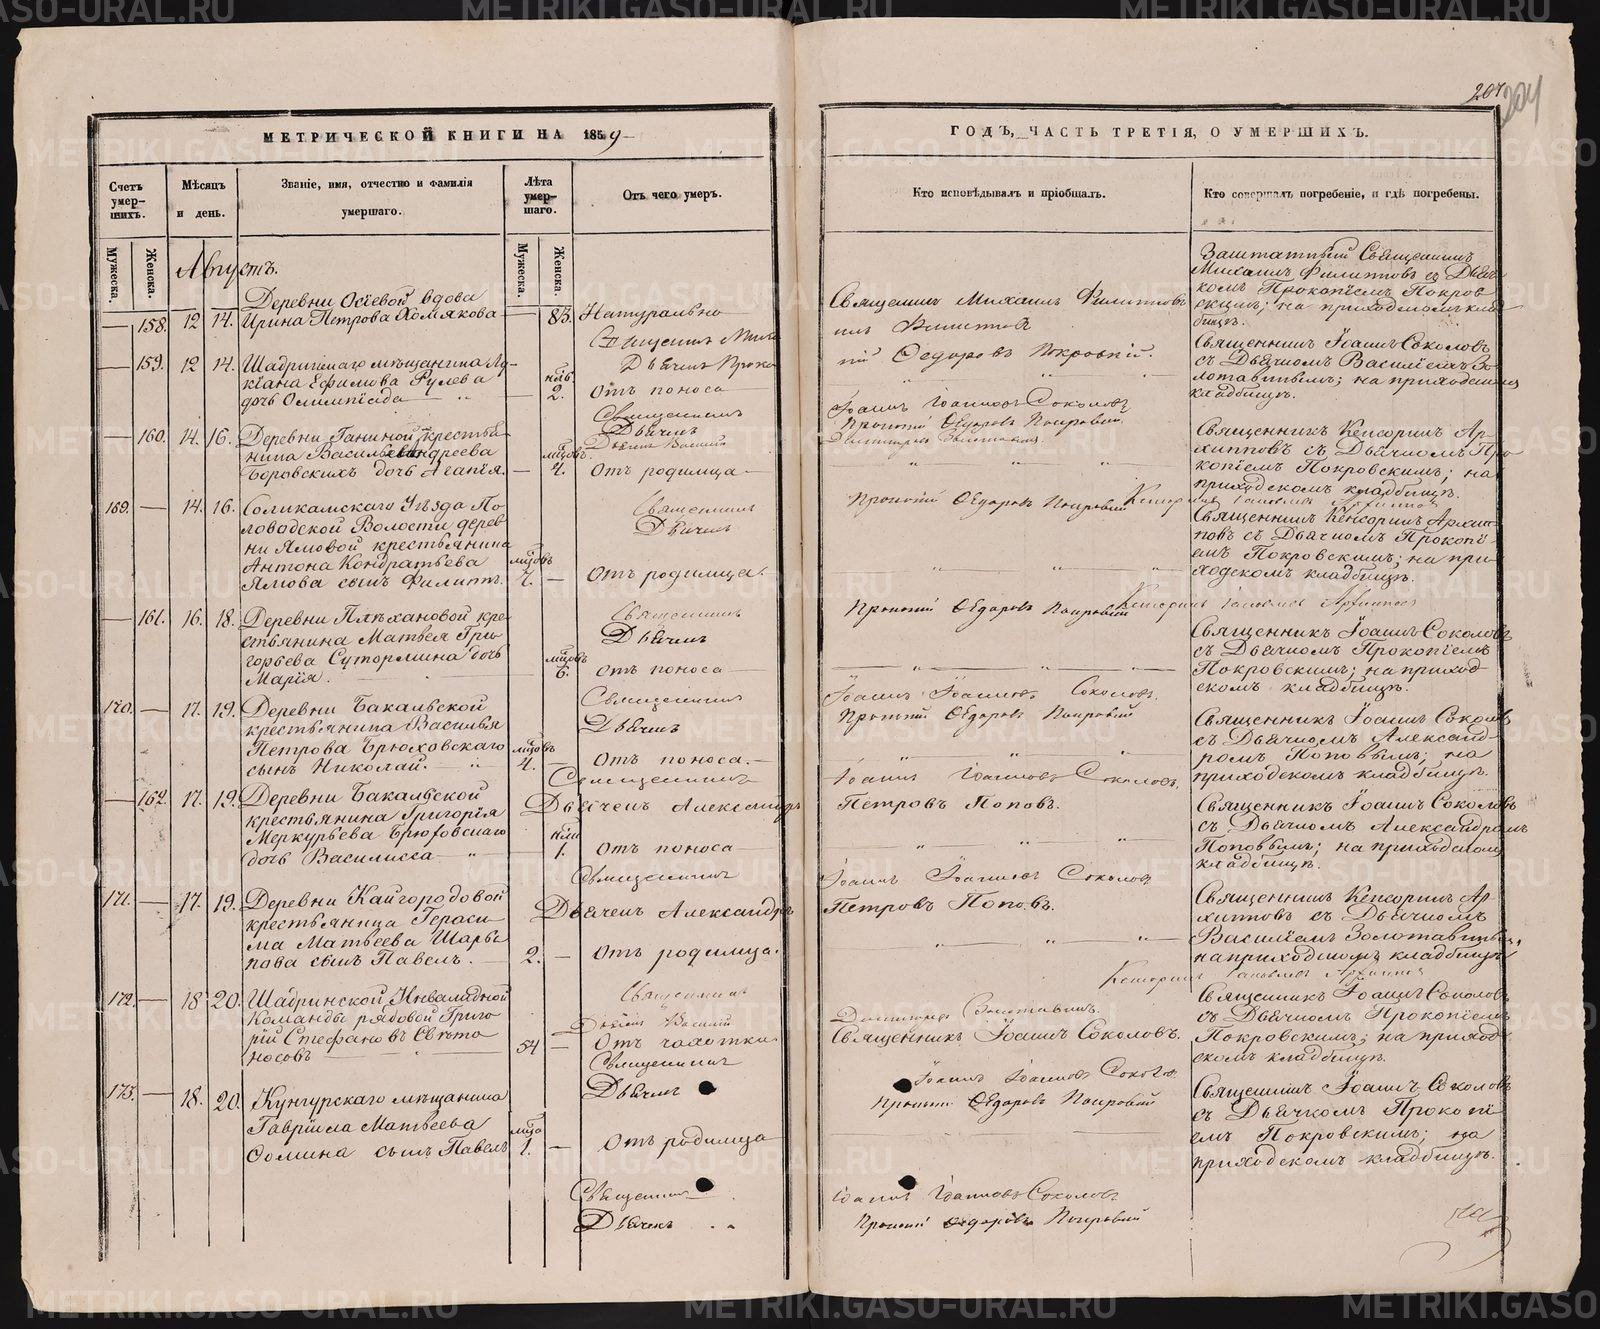 207
204
МЕТРИЧЕСКОЙ КНИГИ НА 1859
Счетъ умер-шихъ.
Мѣсяцъ и день.
Званіе, имя, отчество и фамилія умершаго.
Лѣта умер-шаго.
Отъ чего умеръ.
Мужеска.
Женска.
Мужеска.
Женска.
Августъ.
Деревни Осѣевой вдова
— 158. 12 14. Ирина Петрова Хомякова — 83. Натурально
— 159. 12 14. Шадринскаго мѣщанина Лу-
кіана Ефимова Рулева
дочь Олимпіада — 2. Отъ поноса
Священникъ
Дьячекъ
— 160. 14. 16. Деревни Ганиной крестья-
нина Василья Андреева
Боровскихъ дочь Агапія. — мѣсцовъ 4. Отъ родимца
169. — 14. 16. Соликамскаго Уѣзда По-
ловодской Волости дерев-
ни Ямовой крестьянина
Антона Кондратьева
Ямова сынъ Филиппъ. — Отъ родимца.
Священникъ
Дьячекъ
— 161. 16. 18. Деревни Плѣхановой кре-
стьянина Матвея Гри-
горьева Сутормина дочь
Марія. 6. Отъ поноса
Священникъ
Дьячекъ
170. — 17. 19. Деревни Бакальской
крестьянина Василья
Петрова Брюховскаго
сынъ Николай. 4. — Отъ поноса.
Священникъ
— 162. 17. 19. Деревни Бакальской Дьячекъ Александръ
крестьянина Григорія
Меркурьева Брюховскаго
дочь Василисса 1. Отъ поноса
Священникъ
171. — 17. 19. Деревни Кайгородовой Дьячекъ Александръ
крестьянина Гераси-
ма Матвеева Шары-
пова сынъ Павелъ. 2. — Отъ родимца.
172. — 18 20. Шадринской Инвалидной
Команды рядовой Григо-
рій Стефановъ Свѣто-
носовъ 54 — Отъ чахотки
Священникъ
Дьячекъ
173. — 18. 20. Кунгурскаго мѣщанина
Гавріила Матвеева
Сомина сынъ Павелъ 1. — Отъ родимца
Священникъ
Дьячекъ
ГОДЪ, ЧАСТЬ ТРЕТІЯ, О УМЕРШИХЪ.
Кто исповѣдывалъ и пріобщалъ.
Кто совершалъ погребеніе, и гдѣ погребены.
Священникъ Михаилъ Филипповъ
Федоровъ Покровскій.
Іоаннъ Іоанновъ Соколовъ
Прокопій Ѳедоровъ Покровскій
Прокопій Ѳедоровъ Покровскій
Прокопій Ѳедоровъ Покровскій
Іоаннъ Іоанновъ Соколовъ.
Прокопій Ѳедоровъ Покровскій
Іоаннъ Іоанновъ Соколовъ.
Петровъ Поповъ.
Іоаннъ Іоанновъ Соколовъ
Петровъ Поповъ.
Священникъ Іоаннъ Соколовъ.
Іоаннъ Іоанновъ Соколовъ
Прокопій Ѳедоровъ Покровскій
Іоаннъ Іоанновъ Соколовъ
Прокопій Ѳедоровъ Покровскій
Заштатный Священникъ
Михаилъ Филипповъ съ Дьяч-
комъ Прокопіемъ Покров-
скимъ; на приходскомъ клад-
бищѣ.
Священникъ Іоаннъ Соколовъ
съ Дьячкомъ Василіемъ Зо-
лотавинымъ; на приходскомъ
кладбищѣ.
Священникъ Кенсоринъ Ар-
хиповъ съ Дьячкомъ Про-
копіемъ Покровскимъ; на
приходскомъ кладбищѣ.
Священникъ Кенсоринъ Архип-
повъ съ Дьячкомъ Прокопі-
емъ Покровскимъ; на при-
ходскомъ кладбищѣ.
Священникъ Іоаннъ Соколовъ
съ Дьячкомъ Прокопіемъ
Покровскимъ; на приход-
скомъ кладбищѣ.
Священникъ Іоаннъ Соколовъ
съ Дьячкомъ Александ-
ромъ Поповымъ; на
приходскомъ кладбищѣ.
Священникъ Іоаннъ Соколовъ
съ Дьячкомъ Александромъ
Поповымъ; на приходскомъ
кладбищѣ.
Священникъ Кенсоринъ Ар-
хипповъ съ Дьячкомъ
Василіемъ Золотавинымъ,
на приходскомъ кладбищѣ
Священникъ Іоаннъ Соколовъ
съ Дьячкомъ Прокопіемъ
Покровскимъ; на приход-
скомъ кладбищѣ.
Священникъ Іоаннъ Соколовъ
съ Дьячкомъ Прокопі-
емъ Покровскимъ; на
приходскомъ кладбищѣ.
METRIKI.GASO-URAL.RU